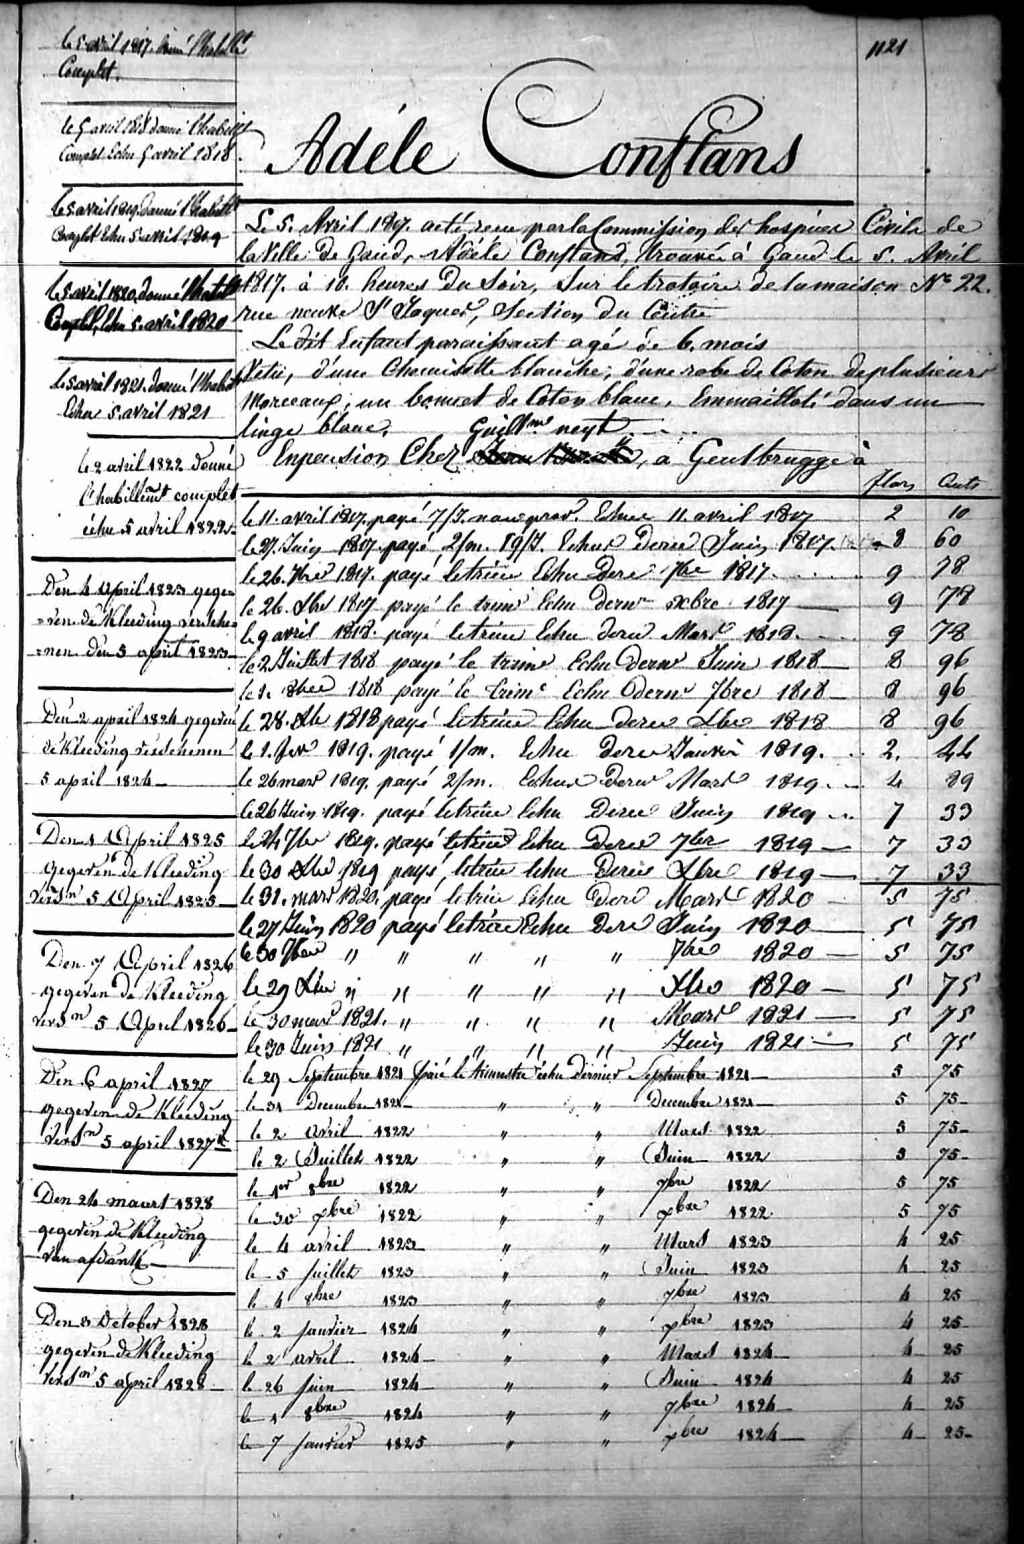 1121
Adéle Conflans
le 5 avril 1817. donné l'habillt
Complet.
le 5 avril 1818 donné l'habillt
Complet Echu 5 avril 1818.
le 5 avril 1819. donné l'habillt
Complet Echu 5 avril 1819
le 5 avril 1820. donné l'habillt
Complet, Echu 5. avril 1820
le 5 avril 1821. donné l'habillt
Echu 5. avril 1821
le 2 avril 1822 donné
l'habillemt complet
échu 5 avril 1822.
Den 4 April 1823 gege-
=ven de Kleeding versche-
=nen den 5 april 1823
Den 2 april 1824 gegeven
de Kleeding verschenen
5 april 1824
Den 1 April 1825
gegeven de Kleeding
versn 5 April 1825
Den 7 April 1826
gegeven de Kleeding
versn 5 April 1826
Den 6 april 1827
gegeven de Kleeding
versn 5 april 1827
Den 24 maart 1828
gegeven de Kleeding
van afdank
Den 3 October 1828
gegeven de Kleeding
versn 5 april 1828
Le 5. Avril 1817. acté recu par la Commission des hospices Civils de
la Ville de Gand, Adéle Conflans, trouvée à Gand le 5. Avril
1817. à 10. heures du Soir, Sur le trotoire de la maison No 22.
rue neuve St Jaques, Section du Centre
Le dit Enfant paraissant agé de 6. mois
Vetu, d'une Chemisette blanche, d'une robe de Coton de plusieurs
Morceaux, un bonnet de Coton blanc, Emmailloté dans un
linge blanc. Guillme neyt
Enpension Chez , à Gentbrugge à
flors Cents
le 11. avril 1817. payé 7/J. Echue 11 avril 1817 2 10
le 27. Juin 1817. payé 2/m. 19/J. Echus derer Juin 1817. 8 60
le 26. 7bre 1817. payé le trime Echu derer 7bre 1817. 9 78
le 26. Xbre 1817 payé le trime Echu dernr Xbre 1817 9 78
le 9 avril 1818. payé le trime Echu derer Mars 1818. 9 78
le 2 Juillet 1818 payé le trime Echu dernr Juin 1818 8 96
le 1. 8bre 1818 payé le trime Echu dernr 7bre 1818 8 96
le 28. Xbre 1818 payé le trime Echu derer Xbre 1818 8 96
le 1. fevr 1819. payé 1/m. Echu derer Janvier 1819. 2. 44
le 26 mars 1819. payé 2/m. Echus dernr Mars 1819. 4 89
le 26 Juin 1819. payé le trime Echu derer Juin 1819 7 33
le 24 7bre 1819. payé le trime Echu derer 7bre 1819 7 33
le 30 Xbre 1819 payé, le trime Echu derer Xbre 1819 7 33
le 31. mars 1820. payé le trime Echu derer Mars 1820 5 75
le 27 Juin 1820 payé le trime Echu derer Juin 1820 5 75
le 30 7bre " " " " " 7bre 1820 5 75
le 29 Xbre " " " " " Xbre 1820 5 75
le 30 mars 1821. " " " " Mars 1821 5 75
le 30 Juin 1821 " " " " Juin 1821 5 75
le 29 Septembre 1821 paié le trimestre échu dernier Septembre 1821 5 75
le 31 Decembre 1821 " " Decembre 1821 5 75
le 2 avril 1822 " " Mars 1822 5 75
le 2 Juillet 1822 " " Juin 1822 5 75
le 1er 8bre 1822 " " 7bre 1822 5 75
le 30 xbre 1822 " " xbre 1822 5 75
le 4 avril 1823 " " Mars 1823 4 25
le 5 juillet 1823 " " Juin 1823 4 25
le 4 8bre 1823 " " 7bre 1823 4 25
le 2 janvier 1824 " " xbre 1823 4 25
le 2 avril 1824 " " Mars 1824 4 25
le 26 juin 1824 " " Juin 1824 4 25
le 1 8bre 1824 " " 7bre 1824 4 25
le 7 janvier 1825 " " xbre 1824 4 25